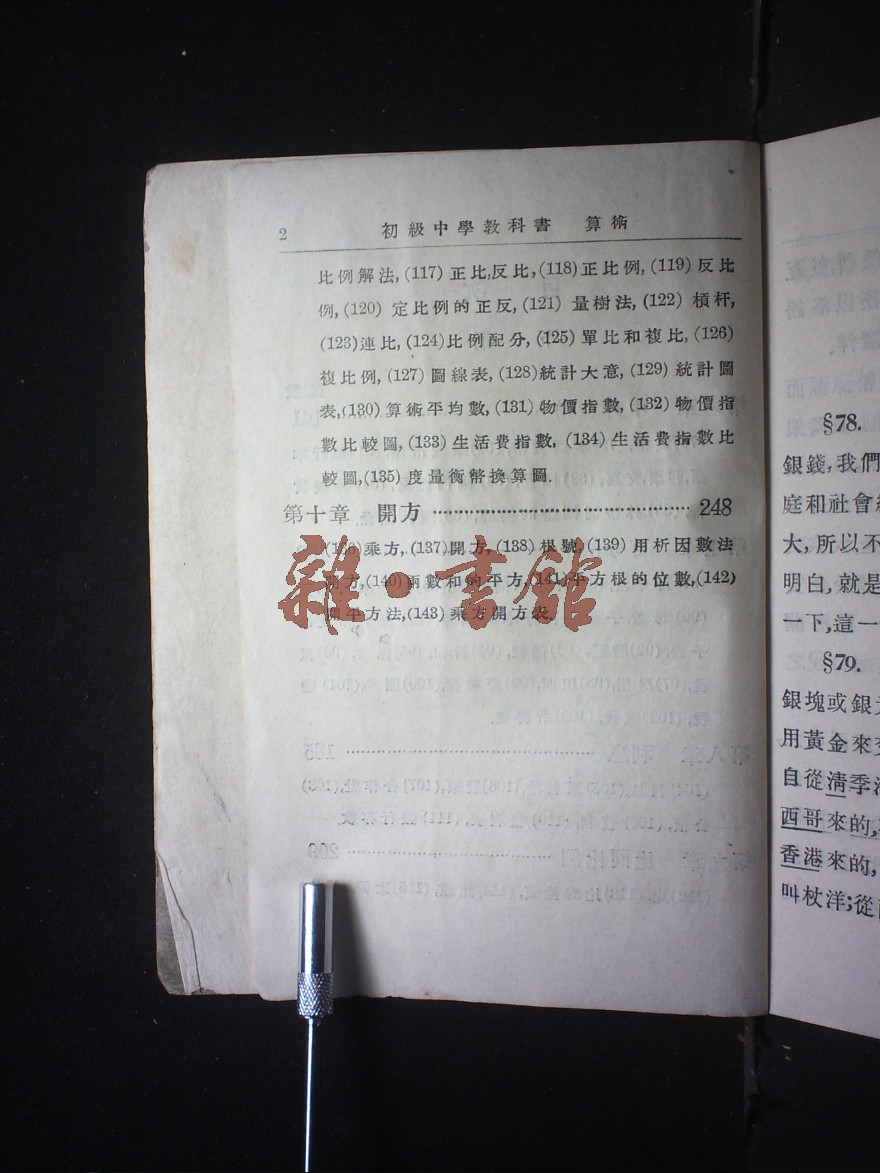 2 初級中學教科書 算術
比例解法,(117) 正比,反比,(118)正比例,(119)反比
例,(120) 定比例的正反,(121) 量樹法,(122) 槓杆,
(123)連比,(124)比例配分,(125)單比和複比,(126)
複比例,(127)圖線表,(128)統計大意,(129)統計圖
表,(130)算術平均數,(131)物價指數,(132)物價指
數比較圖,(133)生活費指數,(134)生活費指數比
較圖,(135)度量衡幣換算圖.
第十章 開方 ……………………………… 248
(136)乘方,(137)開方,(138)根號,(139)用析因數法
開方,(140)兩數和的平方,(141)平方根的位數,(142)
開平方法,(143)乘方開方表.
雜·書館
§78.
銀錢,我們
庭和社會
大,所以不
明白,就是
一下,這一
§79.
銀塊或銀
用黃金來
自從清季
西哥來的,
香港來的,
叫杖洋;從